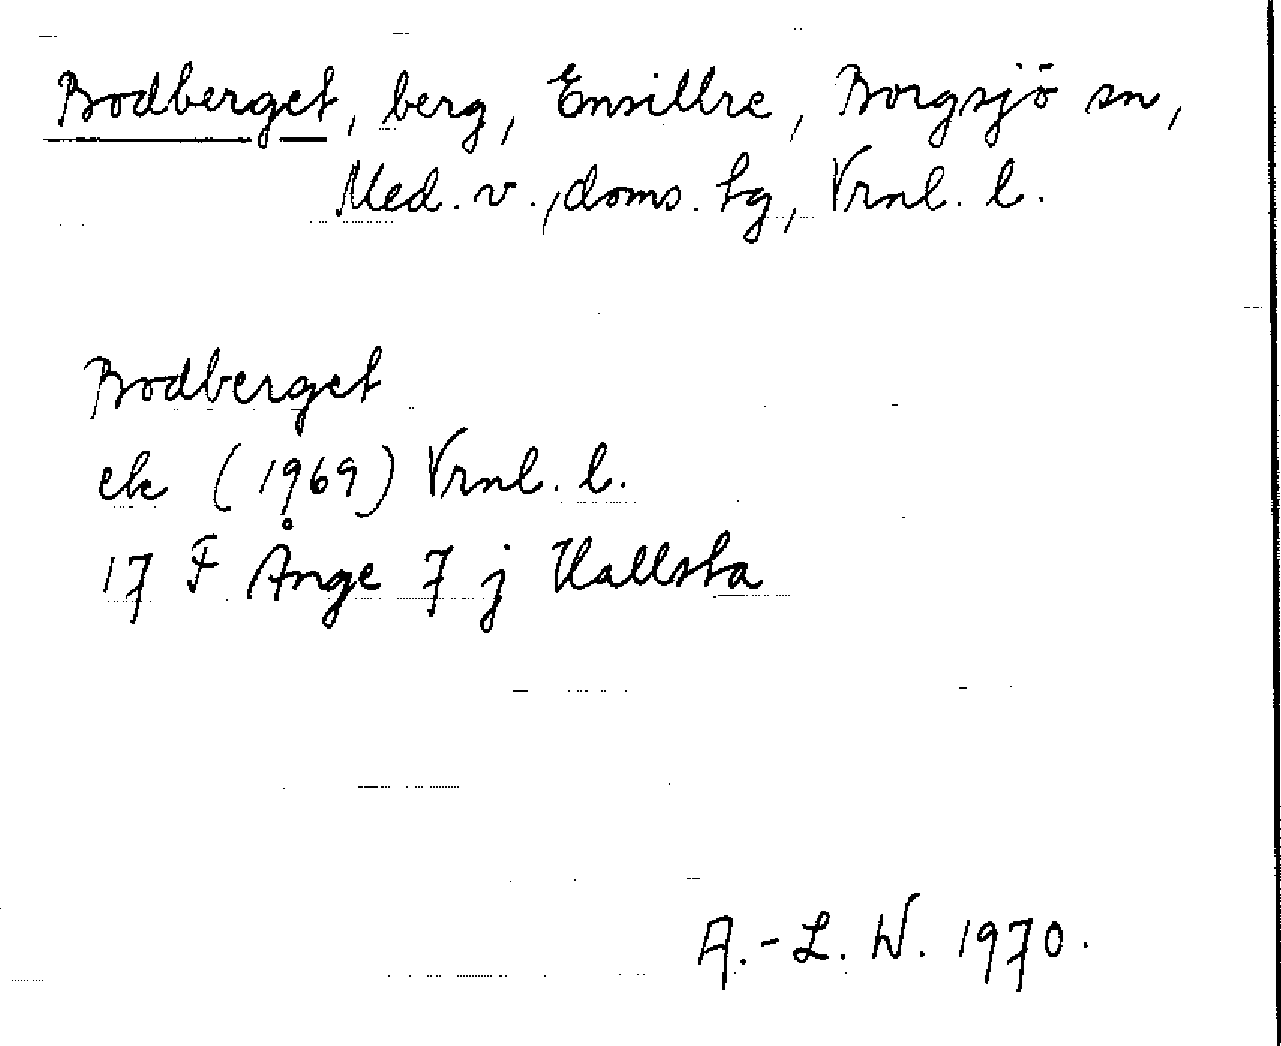 Bodberget, berg, Ensillre, Borgsjö sn,
Med. v., doms. tg, Vrnl. l.
Bodberget
ek (1969) Vrnl. l.
17 F Ånge 7 j Hallsta
A.-L. W. 1970.